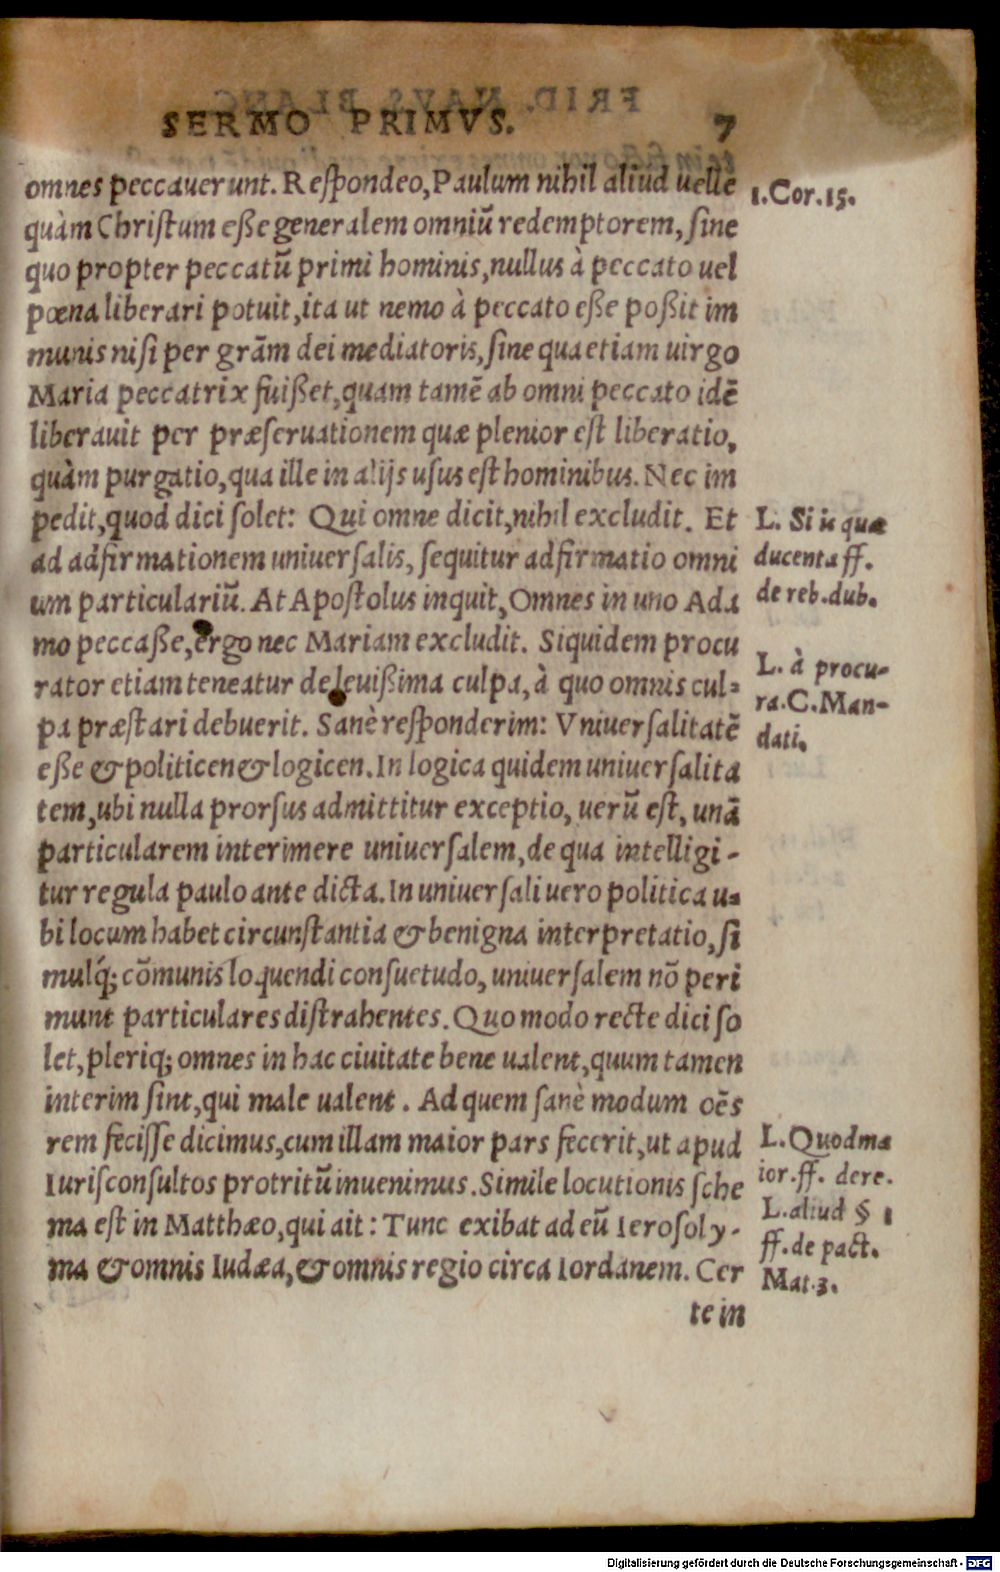 SERMO PRIMVS. 7
omnes peccauerunt. Reſpondeo, Paulum nihil aliud uelle
quàm Chriſtum eſſe generalem omniũ redemptorem, ſine
quo propter peccatũ primi hominis, nullus à peccato uel
pœna liberari potuit, ita ut nemo à peccato eſſe poßit im
munis niſi per grãm dei mediatoris, ſine qua etiam uirgo
Maria peccatrix fuiſſet, quam tamẽ ab omni peccato idẽ
liberauit per præſeruationem quæ plenior eſt liberatio,
quàm purgatio, qua ille in alijs uſus eſt hominibus. Nec im
pedit, quod dici ſolet: Qui omne dicit, nihil excludit. Et
ad adfirmationem uniuerſalis, ſequitur adfirmatio omni
um particulariũ. At Apoſtolus inquit, Omnes in uno Ada
mo peccaſſe, ergo nec Mariam excludit. Siquidem procu
rator etiam teneatur de leuißima culpa, à quo omnis cul=
pa præſtari debuerit. Sanè reſponderim: Vniuerſalitatẽ
eſſe & politicen & logicen. In logica quidem uniuerſalita
tem, ubi nulla prorſus admittitur exceptio, uerũ eſt, unã
particularem interimere uniuerſalem, de qua intelligi-
tur regula paulo ante dicta. In uniuerſali uero politica u=
bi locum habet circunſtantia & benigna interpretatio, ſi
mulq́; cõmunis loquendi conſuetudo, uniuerſalem nõ peri
munt particulares diſtrahentes. Quo modo recte dici ſo
let, pleriq; omnes in hac ciuitate bene ualent, quum tamen
interim ſint, qui male ualent. Ad quem ſanè modum oẽs
rem feciſſe dicimus, cum illam maior pars fecerit, ut apud
Iuriſconſultos protritũ inuenimus. Simile locutionis ſche
ma eſt in Matthæo, qui ait: Tunc exibat ad eũ Ieroſoly-
ma & omnis Iudæa, & omnis regio circa Iordanem. Cer
te in
1. Cor. 15.
L. Si is quæ
ducenta ff.
de reb. dub.
L. à procu=
ra. C. Man-
dati.
L. Quod ma
ior. ff. de re.
L. aliud § 1
ff. de pact.
Mat. 3.
Digitalisierung gefördert durch die Deutsche Forschungsgemeinschaft - DFG